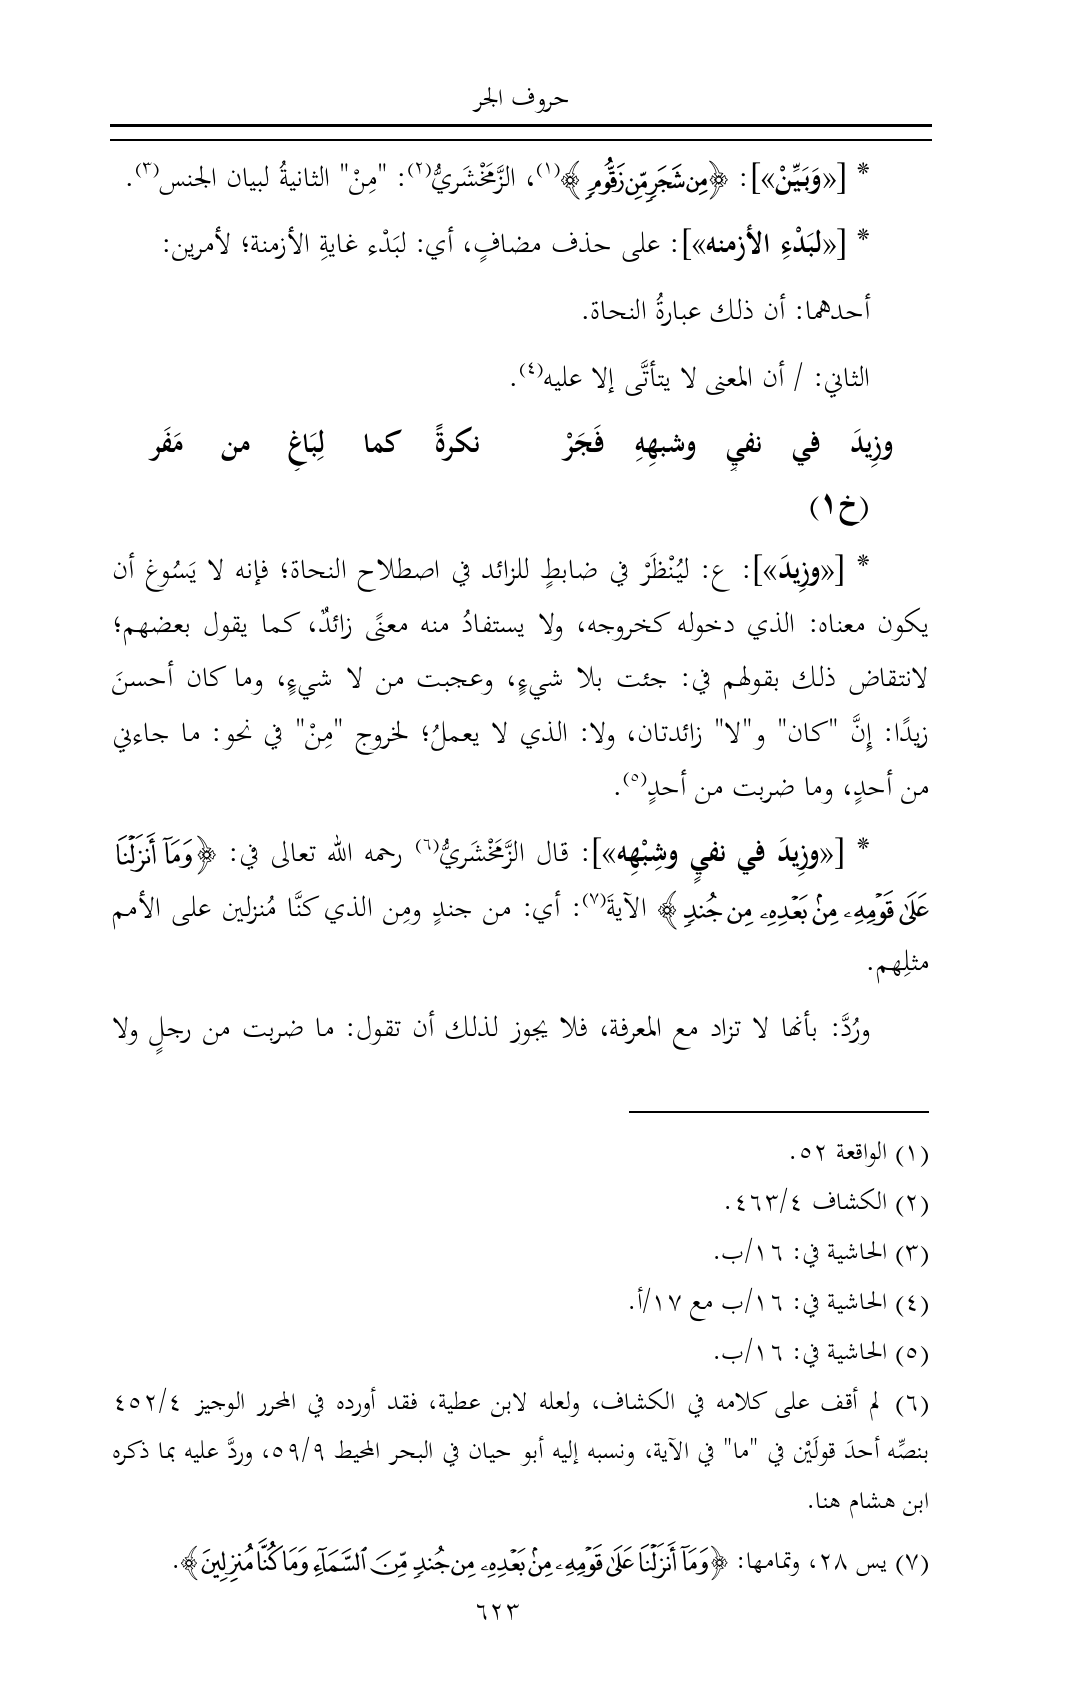 حروف الجر
* [«وَبَيِّنْ»]: ﴿مِن شَجَرٍ مِّن زَقُّومٍ﴾(١)، الزَّمَخْشَريُّ(٢): "مِنْ" الثانيةُ لبيان الجنس(٣).
* [«لبَدْءِ الأزمنه»]: على حذف مضافٍ، أي: لبَدْء غايةِ الأزمنة؛ لأمرين:
أحدهما: أن ذلك عبارةُ النحاة.
الثاني: / أن المعنى لا يتأتَّى إلا عليه(٤).
وزِيدَ في نفيٍ وشبهِهِ فَجَرْ نكرةً كما لِبَاغٍ من مَفَر
(خ١)
* [«وزِيدَ»]: ع: ليُنْظَرْ في ضابطٍ للزائد في اصطلاح النحاة؛ فإنه لا يَسُوغ أن
يكون معناه: الذي دخوله كخروجه، ولا يستفادُ منه معنًى زائدٌ، كما يقول بعضهم؛
لانتقاض ذلك بقولهم في: جئت بلا شيءٍ، وعجبت من لا شيءٍ، وما كان أحسنَ
زيدًا: إِنَّ "كان" و"لا" زائدتان، ولا: الذي لا يعملُ؛ لخروج "مِنْ" في نحو: ما جاءني
من أحدٍ، وما ضربت من أحدٍ(٥).
* [«وزِيدَ في نفيٍ وشِبْهِه»]: قال الزَّمَخْشَريُّ(٦) رحمه الله تعالى في: ﴿وَمَآ أَنزَلْنَا
عَلَىٰ قَوْمِهِۦ مِنۢ بَعْدِهِۦ مِن جُندٍ﴾ الآيةَ(٧): أي: من جندٍ ومِن الذي كنَّا مُنزلين على الأمم
مثلِهم.
ورُدَّ: بأنها لا تزاد مع المعرفة، فلا يجوز لذلك أن تقول: ما ضربت من رجلٍ ولا
(١) الواقعة ٥٢.
(٢) الكشاف ٤/٤٦٣.
(٣) الحاشية في: ١٦/ب.
(٤) الحاشية في: ١٦/ب مع ١٧/أ.
(٥) الحاشية في: ١٦/ب.
(٦) لم أقف على كلامه في الكشاف، ولعله لابن عطية، فقد أورده في المحرر الوجيز ٤/٤٥٢
بنصِّه أحدَ قولَيْن في "ما" في الآية، ونسبه إليه أبو حيان في البحر المحيط ٥٩/٩، وردَّ عليه بما ذكره
ابن هشام هنا.
(٧) يس ٢٨، وتمامها: ﴿وَمَآ أَنزَلْنَا عَلَىٰ قَوْمِهِۦ مِنۢ بَعْدِهِۦ مِن جُندٍ مِّنَ ٱلسَّمَآءِ وَمَا كُنَّا مُنزِلِينَ﴾.
٦٢٣